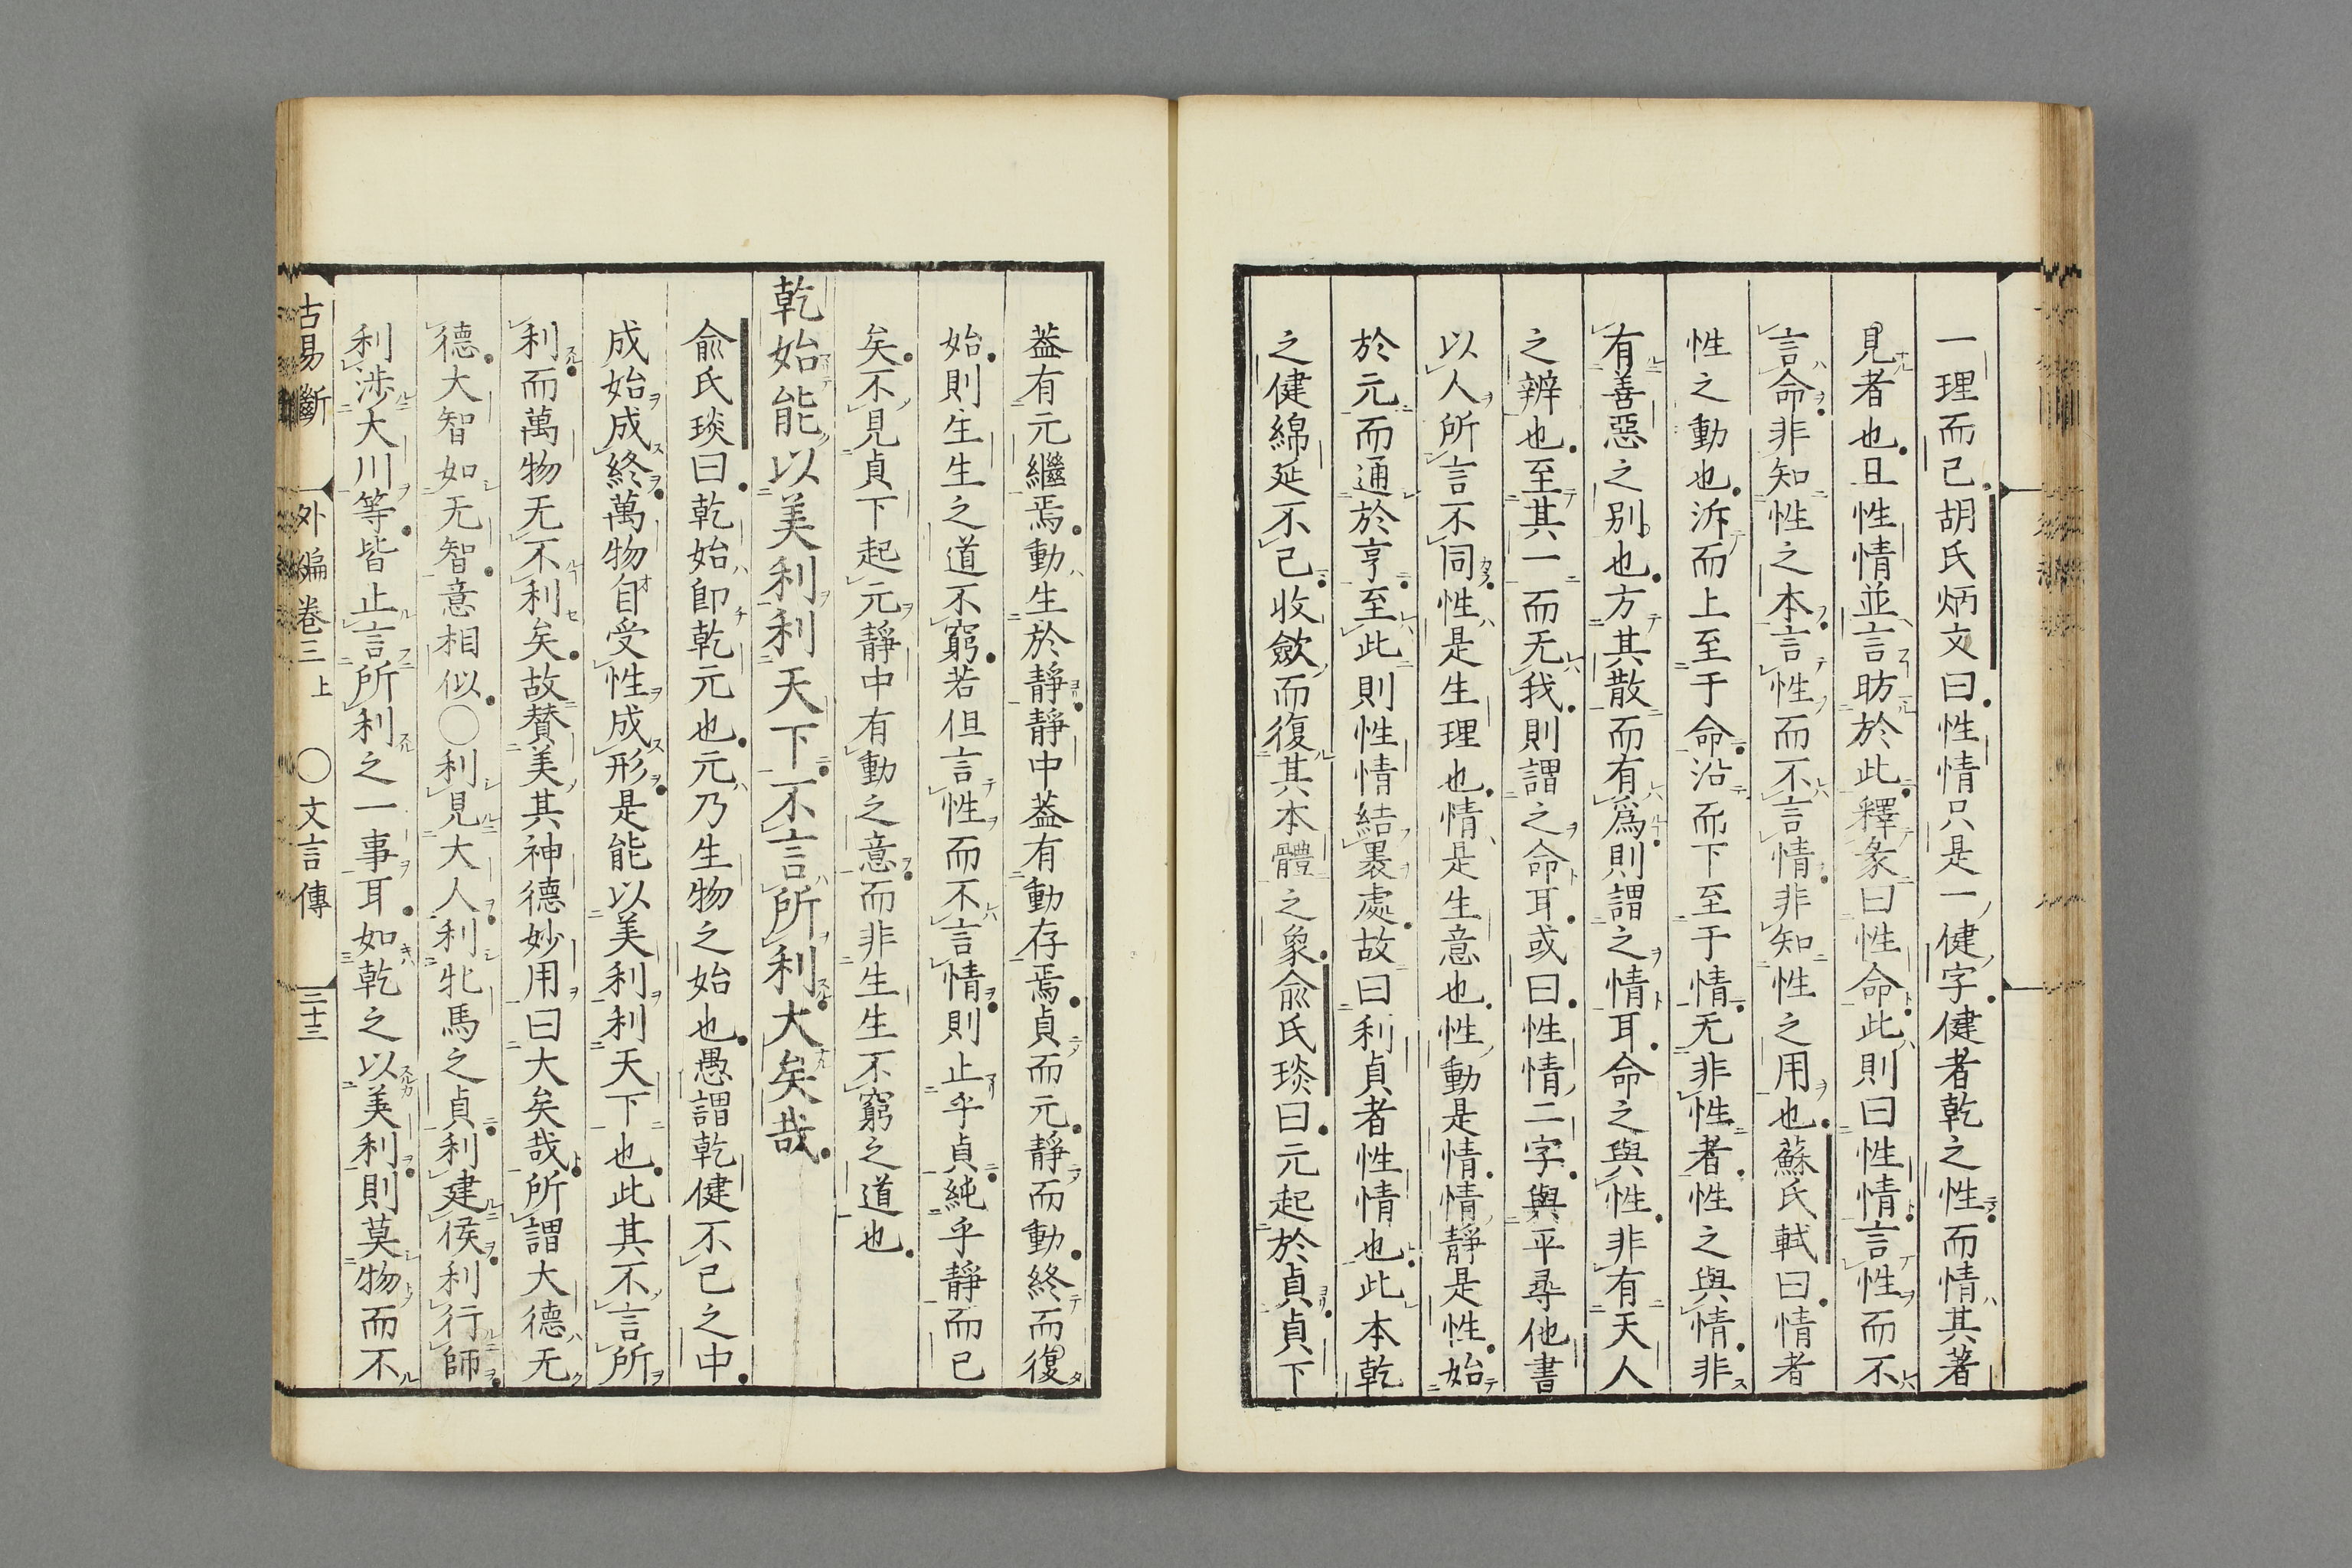 一理而已胡氏炳文曰性情只是一健字健者乾之性而情其著
見者也且性情並言昉於此釋彖曰性命此則曰性情言性而不
言命非知性之本言性而不言情非知性之用也蘇氏軾曰情者
性之動也泝而上至于命沿而下至于情无非性者性之與情非
有善惡之別也方其散而有爲則謂之情耳命之與性非有天人
之辨也至其一而无我則謂之命耳或曰性情二字與平尋他書
以人所言不同性是生理也情是生意也性動是情情靜是性始
於元而通於亨至此則性情結褁處故曰利貞者性情也此本乾
之健綿延不已收斂而復其本體之象俞氏琰曰元起於貞貞下
葢有元繼焉動生於靜靜中葢有動存焉貞而元靜而動終而復
始則生生之道不窮若但言性而不言情則止乎貞純乎靜而已
矣不見貞下起元靜中有動之意而非生生不窮之道也
乾始能以美利利天下不言所利大矣哉
俞氏琰曰乾始卽乾元也元乃生物之始也愚謂乾健不已之中
成始成終萬物自受性成形是能以美利利天下也此其不言所
利而萬物无不利矣故贊美其神德妙用曰大矣哉所謂大德无
德大智如无智意相似〇利見大人利牝馬之貞利建侯利行師
利涉大川等皆止言所利之一事耳如乾之以美利則莫物而不
古易斷　外編卷三上　〇文言傳　三十三